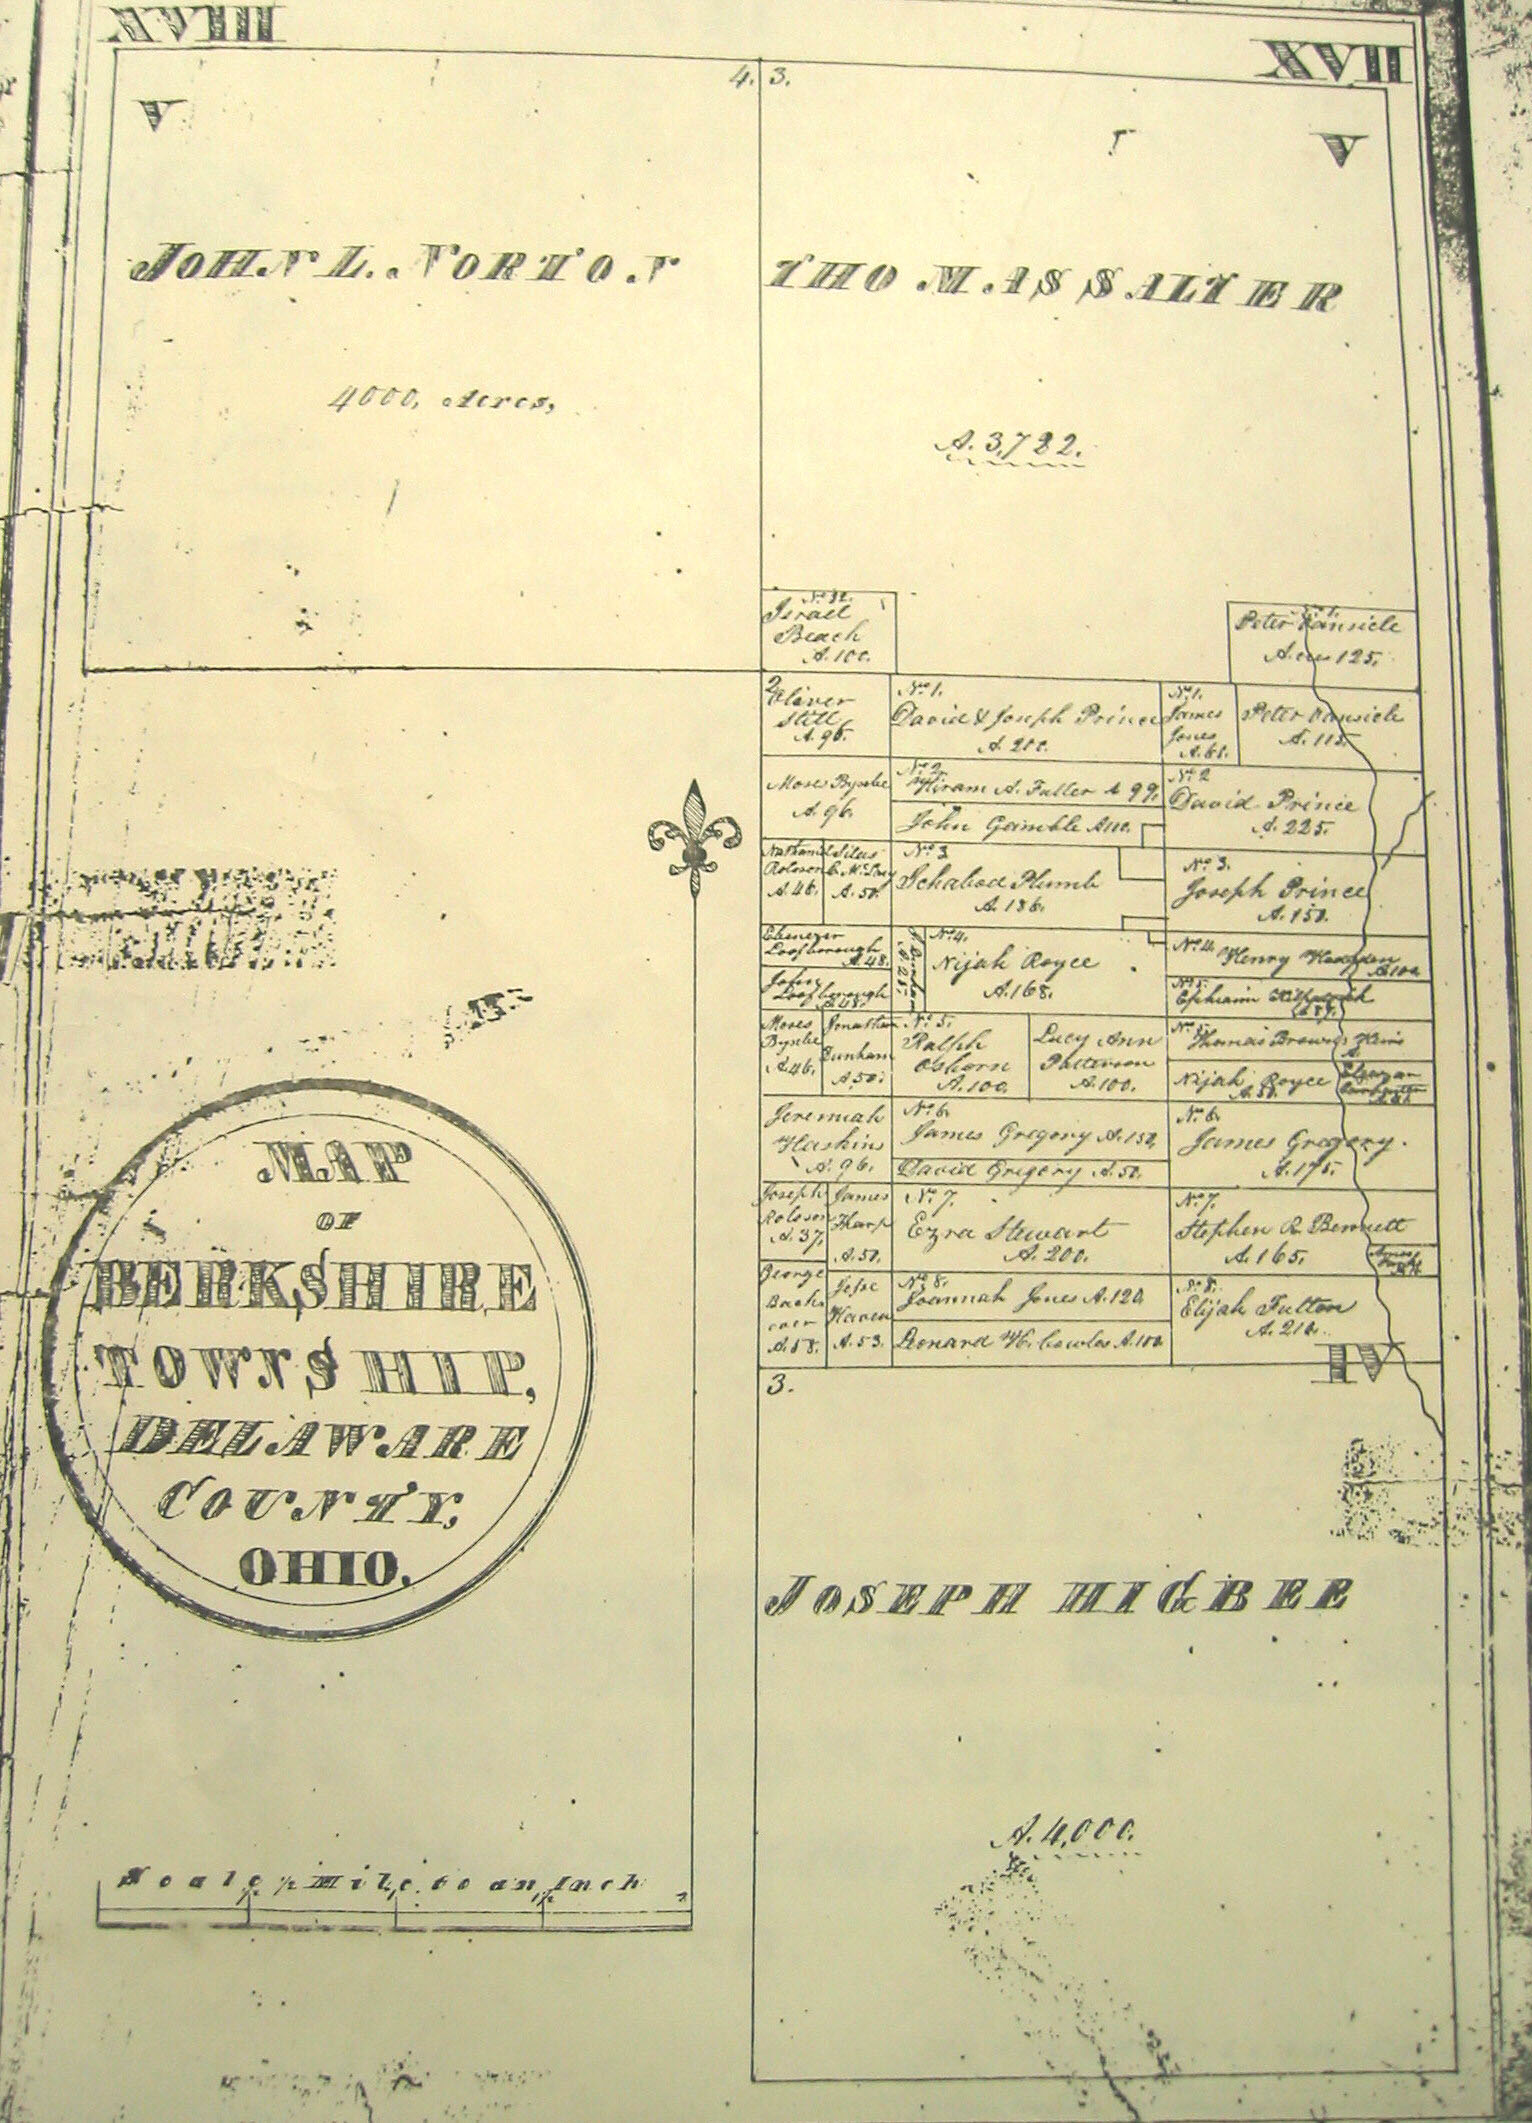 XVIII
XVII
4. 3.
V
V
JOHN L. NORTON
THOMAS SALTER
4000, Acres,
A. 3,722.
Israel
Beach
A. 100.
No. 1.
Peter Vansicle
Acres 125.
2
Oliver
Still
A. 96.
No. 1.
David & Joseph Prince
A. 200.
No. 1.
James
Jones
A. 60.
Peter Vansicle
A. 115.
Moses Byxbe
A. 96.
No. 2
Hiram A. Fuller A 99.
John Gamble A 100.
No. 2
David Prince
A. 225.
Nathaniel
Roloson
A. 46.
Silas
A. 50.
No. 3
Ichabod Plumb
A. 186.
No. 3.
Joseph Prince
A. 150.
Ebenezer
Loofborough
A 48.
John
Loofborough
A 48.
No. 4.
Nijah Royce
A. 168.
No. 4.
Henry
A 100
No. 5.
Ephraim
Moses
Byxbe
A 46.
Jonathan
Dunham
A. 50.
No. 5.
Ralph
Osborn
A. 100.
Lucy Ann
Patterson
A. 100.
No. 5.
Thomas Brown's Heirs
Nijah Royce
A. 50.
Jeremiah
Haskins
A. 96.
No. 6.
James Gregory A. 150,
David Gregory A. 50.
No. 6.
James Gregory.
A. 175.
Joseph
Roloson
A. 37,
James
Tharp
A. 50.
No. 7.
Ezra Stewart
A. 200.
No. 7.
Stephen R. Bennett
A. 165.
George
Back
over
A. 58.
Jesse
Haven
A. 53.
No. 8.
Joannah Jones A. 120.
Leonard H. Cowles A. 100
No. 8.
Elijah Fulton
A. 210.
IV
3.
MAP
OF
BERKSHIRE
TOWNSHIP,
DELAWARE
COUNTY,
OHIO.
JOSEPH HIGBEE
A. 4,000.
Scale ½ Mile to an Inch